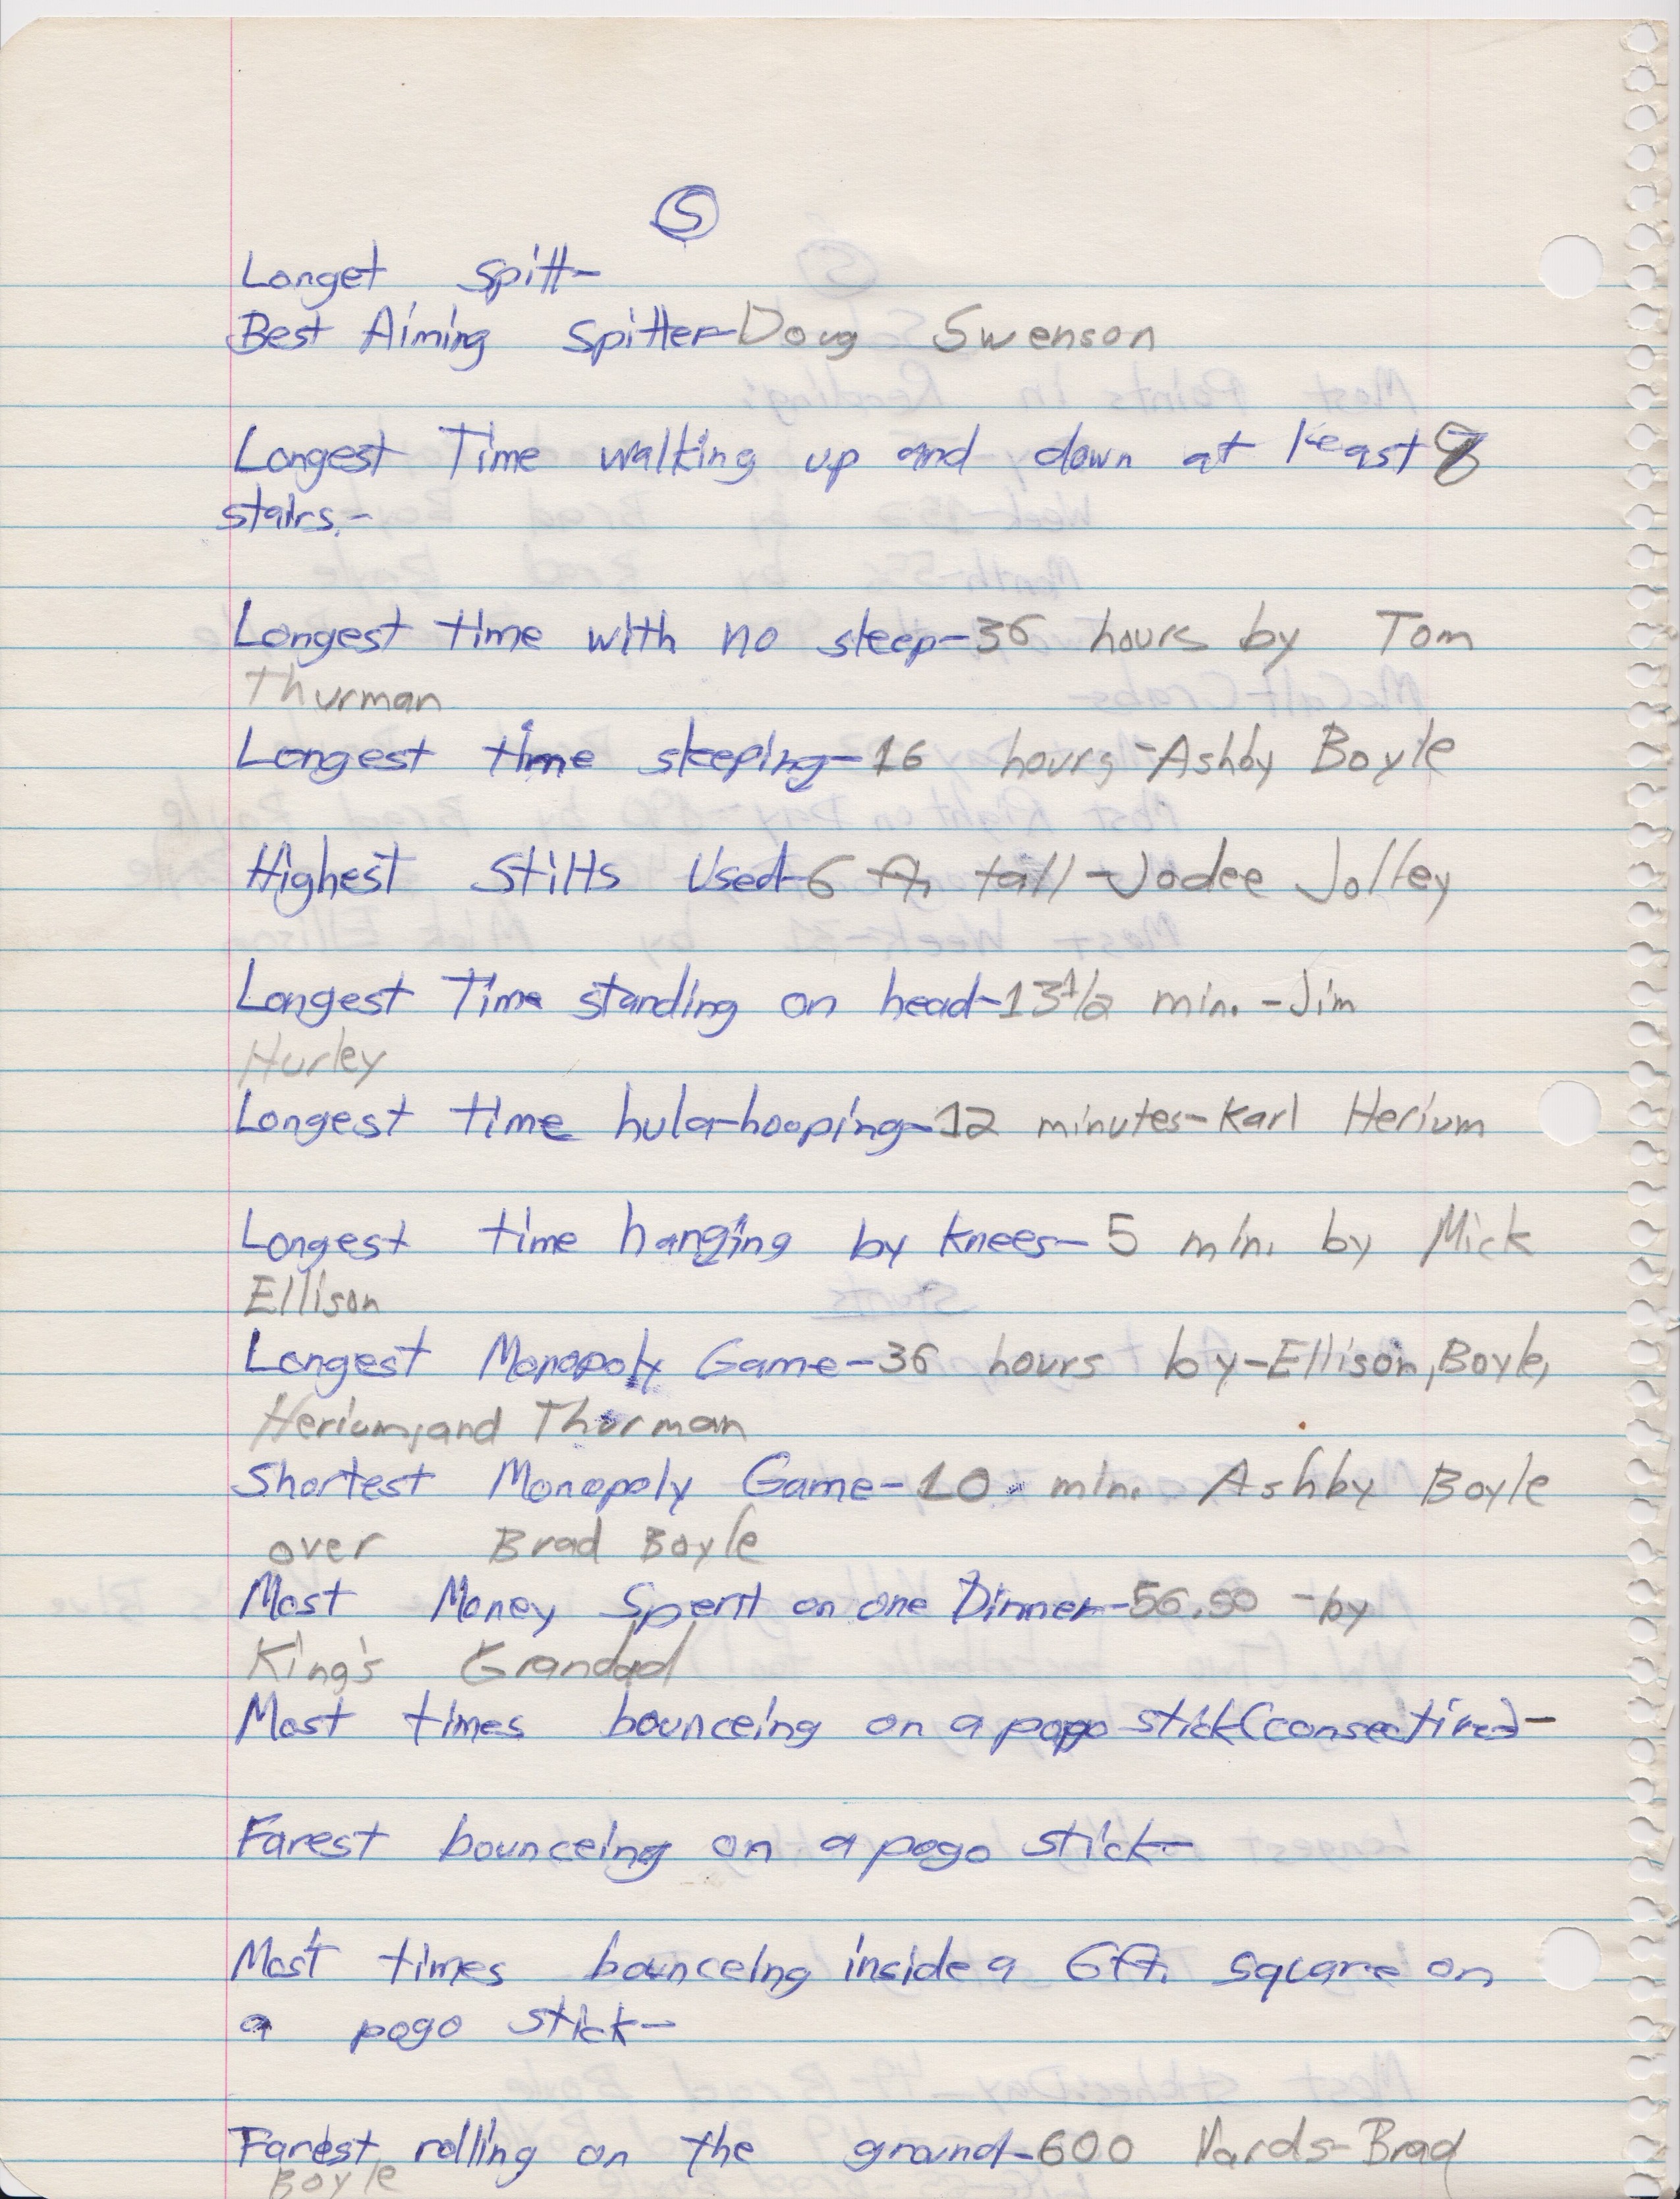 S
Longet Spitt-
Best Aiming Spitter-Doug Swenson
Longest Time walking up and down at least 8
stairs.-
Longest time with no sleep-36 hours by Tom
Thurman
Longest time sleeping-16 hours-Ashby Boyle
Highest Stilts Used-6 ft. tall-Jodee Jolley
Longest Time standing on head-13 1/2 min.-Jim
Hurley
Longest time hula-hooping-12 minutes-Karl Herium
Longest time hanging by knees-5 min. by Mick
Ellison
Longest Monopoly Game-36 hours by-Ellison, Boyle,
Herium, and Thurman
Shortest Monopoly Game-10 min. Ashby Boyle
over Brad Boyle
Most Money Spent on one Dinner-56.50 -by
King's Grandad
Most times bounceing on a pogo stick
Farest bounceing on a pogo stick-
Most times bounceing inside a 6ft. square on
a pogo stick-
Farest rolling on the ground-600 Yards-Brad
Boyle